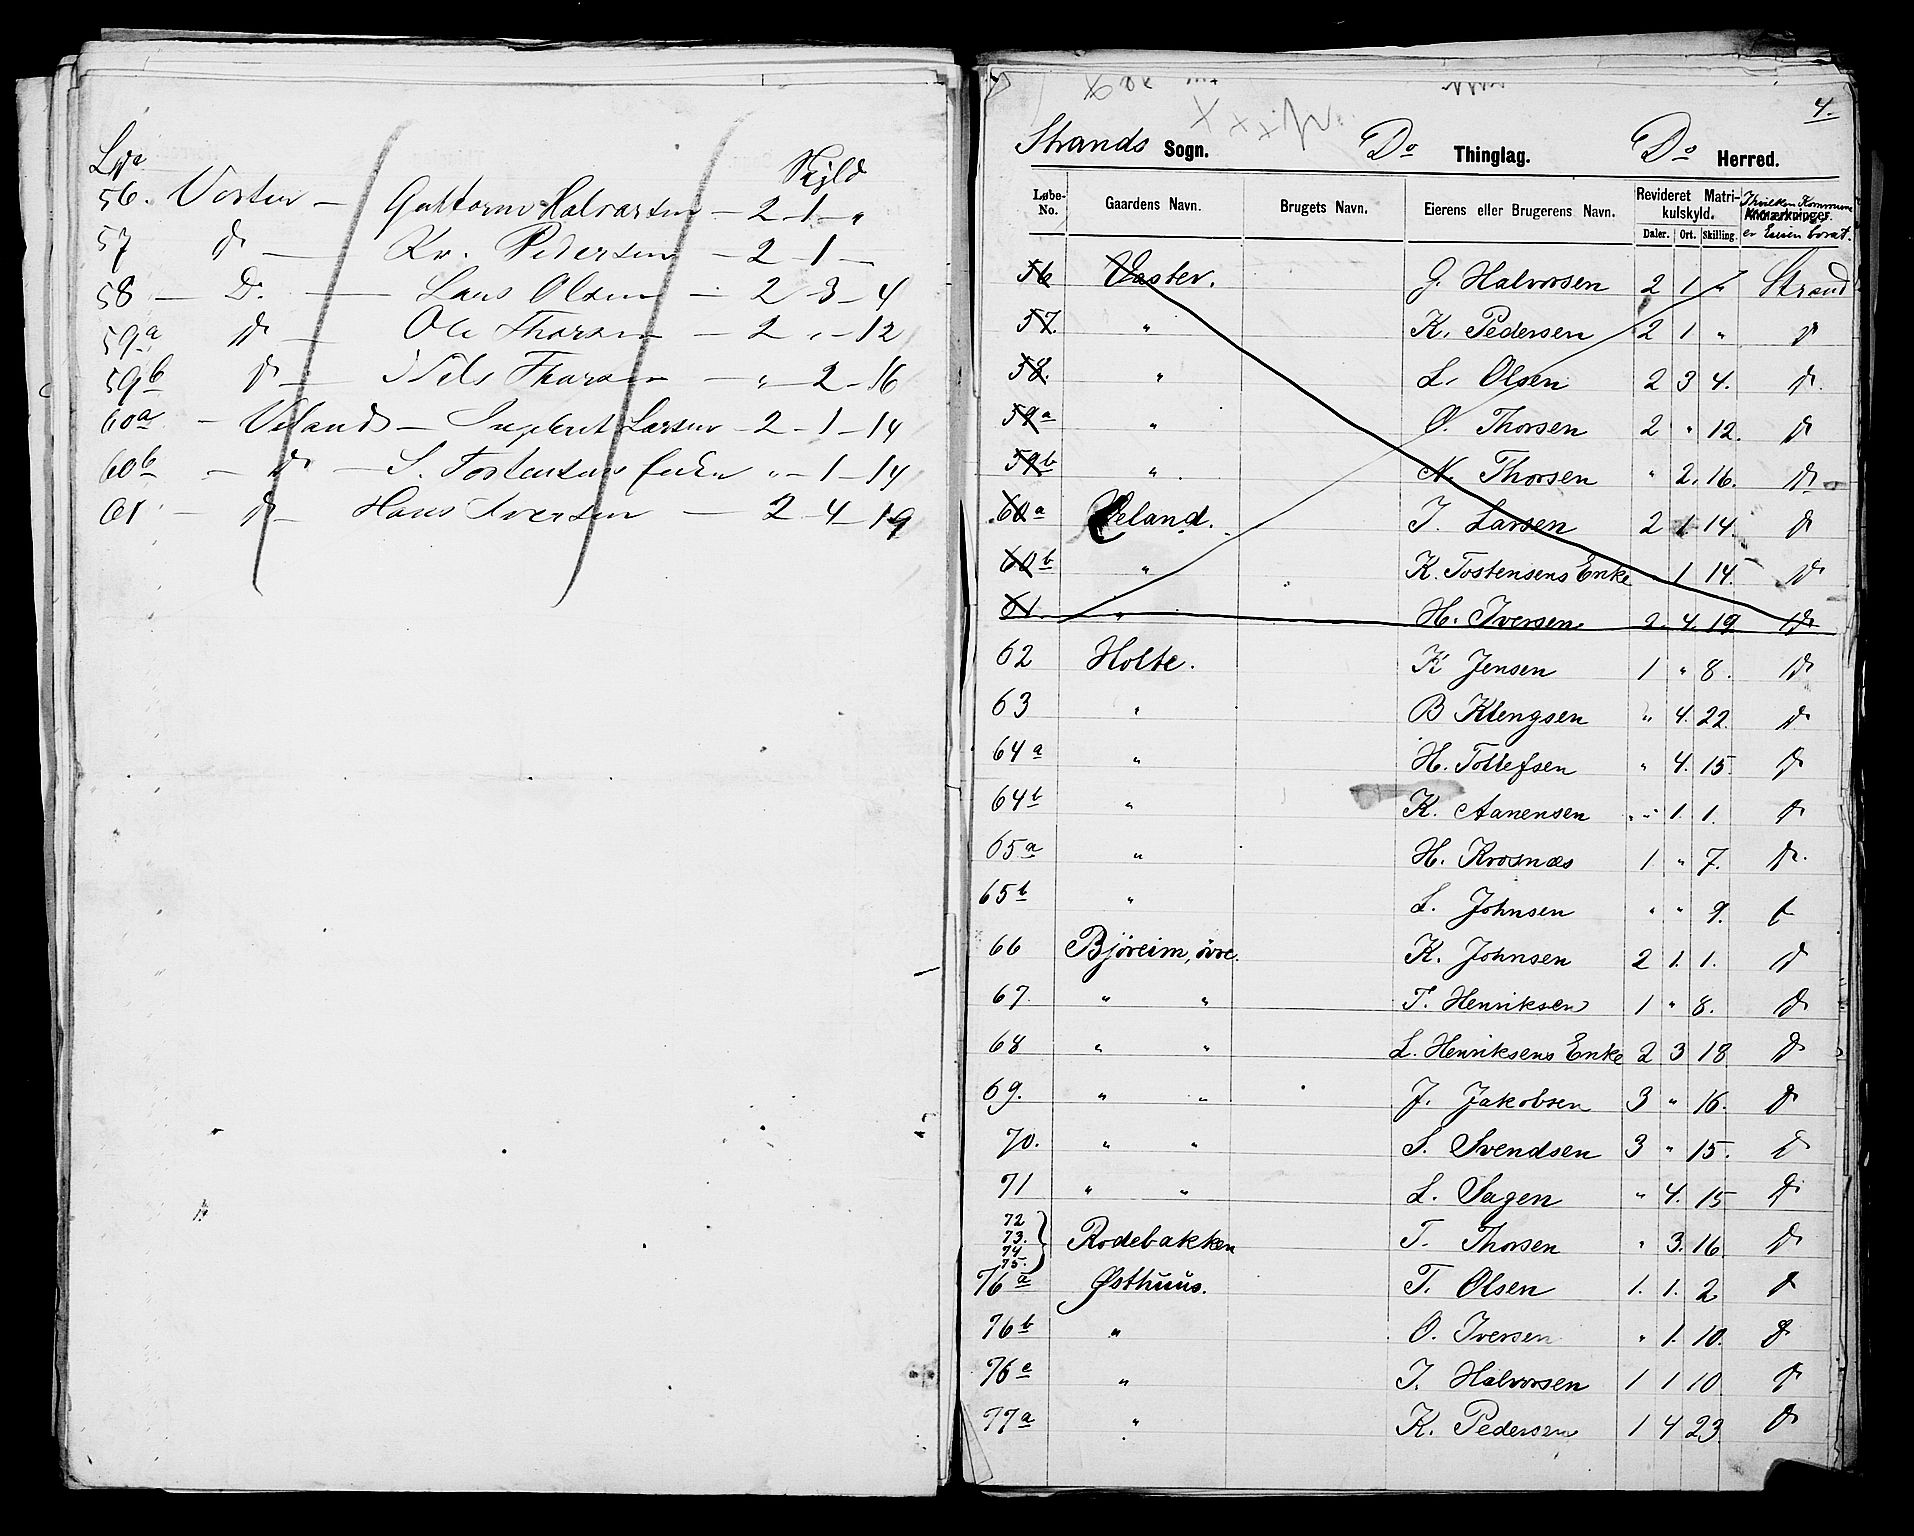 Lda Skyld
56. Vosten — Guttorm Halvorsen — 2 — 1 — „
57 do — Kr. Pedersen — 2 — 1 —
58 — Do. — Lars Olsen — 2 — 3 — 4
59a do — Ole Thorsen — 2 „ — 12
59b do — Nils Thorsen — „ — 2 — 16
60a — Veland — Larsen — 2 — 1 — 14
60b — do — Tostensens Enke „ — 1 — 14
61 — do — Hans Iversen — 2 — 4 — 19
4.
Strands Sogn. Do Thinglag. Do Herred.
Løbe-No. Gaardens Navn. Brugets Navn. Eierens eller Brugerens Navn. Revideret Matrikulskyld. Daler. Ort. Skilling. Anmærkninger. I hvilken Kommune er Eieren bosat.
56 Voster. G. Halvorsen 2 1 „ Strand
57. „ K. Pedersen 2 1 „ do
58. „ L. Olsen 2 3 4. do.
59a „ O. Thorsen 2 „ 12. do
59b „ N. Thorsen „ 2. 16. do
60a Veland. I. Larsen 2 1. 14. do
60b „ K. Tostensens Enke 1 14. do
61. „ H. Iversen 2. 4. 19 do
62 Holte. K Jensen 1 „ 8. do
63 „ B Klengsen „ 4. 22. do
64a „ H. Tollefsen „ 4. 15. do
64b „ K. Aanensen „ 1. 1. do
65a „ H. Krosnæs 1 „ 7. do.
65b „ L. Johnsen „ „ 9. do
66 Björeim, övre. K. Johnsen 2 1. 1. do
67. „ „ T. Henriksen 1 „ 8. do
68 „ „ L. Henriksens Enke 2 3 18 do
69. „ „ J. Jakobsen 3 „ 16. do
70. „ „ S. Svendsen 3 „ 15. do
71 „ „ L. Sagen „ 4. 15 do
72 73. 74 75. } Rodebakken T. Thorsen „ 3. 16. do
76a Østhuus. T. Olsen 1. 1. 2 do
76b „ O. Iversen „ 1. 10. do
76c „ I. Halvorsen 1 1 10 do
77a „ K. Pedersen 1 4 23 do